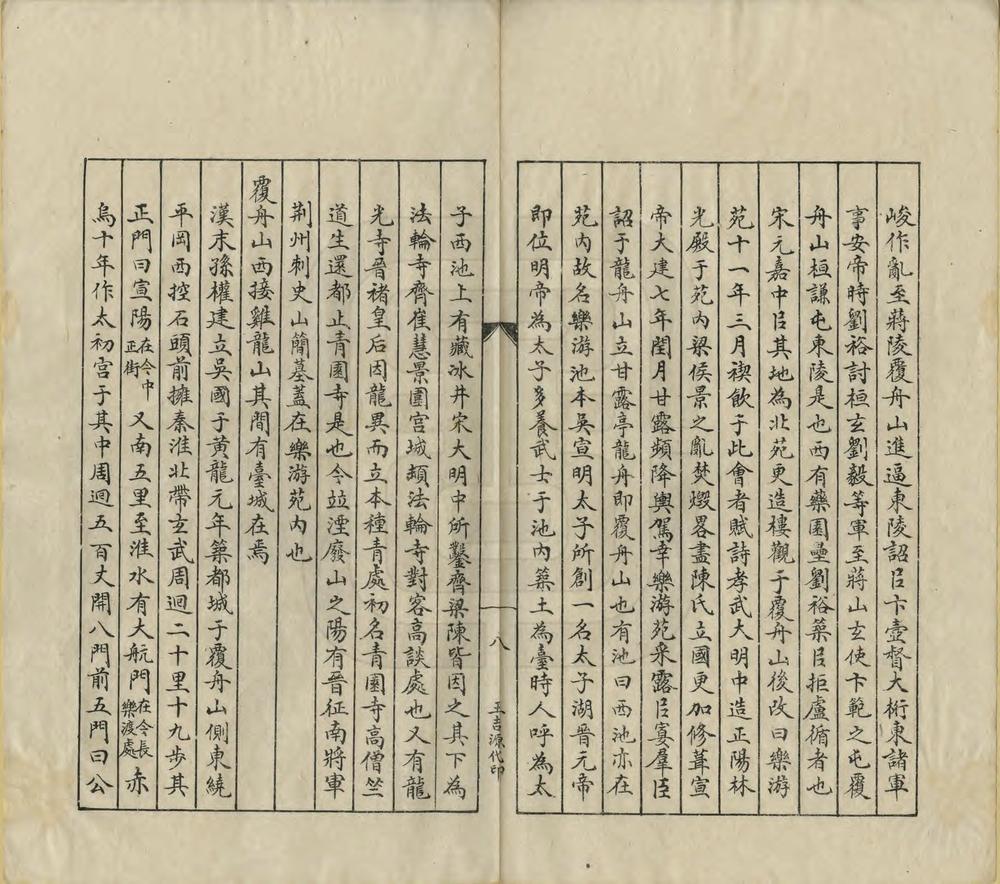 峻作亂至蔣陵覆舟山進逼東陵詔㠯卞壼督大桁東諸軍
事安帝時劉裕討桓玄劉毅等軍至蔣山玄使卞範之屯覆
舟山桓謙屯東陵是也西有藥園壘劉裕築㠯拒盧循者也
宋元嘉中㠯其地為北苑更造樓觀于覆舟山後改曰樂游
苑十一年三月禊飲于此會者賦詩孝武大明中造正陽林
光殿于苑內梁侯景之亂焚燬畧盡陳氏立國更加修葺宣
帝大建七年閏月甘露頻降輿駕幸樂游苑采露㠯宴羣臣
詔于龍舟山立甘露亭龍舟即覆舟山也有池曰西池亦在
苑內故名樂游池本吳宣明太子所創一名太子湖晉元帝
即位明帝為太子多養武士于池內築土為臺時人呼為太
八
王吉源代印
子西池上有藏冰井宋大明中所鑿齊梁陳皆因之其下為
法輪寺齊崔慧景圍宮城頓法輪寺對客高談處也又有龍
光寺晉褚皇后因龍異而立本種青處初名青園寺高僧竺
道生還都止青園寺是也今竝湮廢山之陽有晉征南將軍
荆州刺史山簡墓蓋在樂游苑內也
覆舟山西接雞龍山其間有臺城在焉
漢末孫權建立吳國于黃龍元年築都城于覆舟山側東繞
平岡西控石頭前擁秦淮北帶玄武周迴二十里十九步其
正門曰宣陽在今中正街又南五里至淮水有大航門在今長樂渡處赤
烏十年作太初宮于其中周迴五百丈開八門前五門曰公